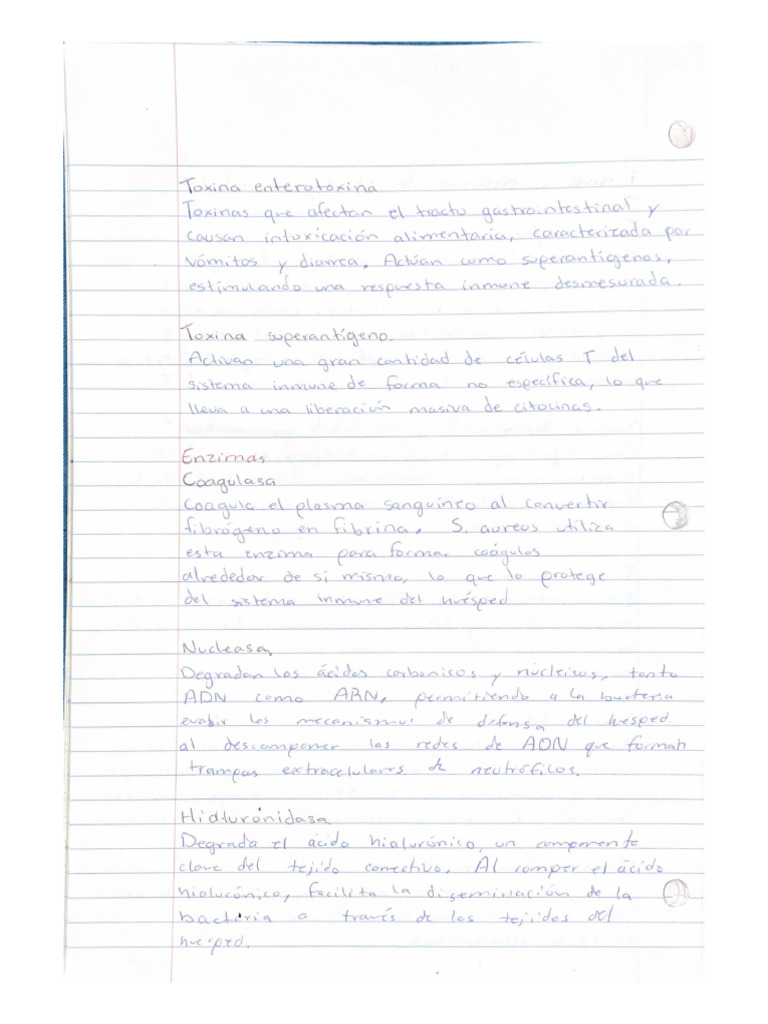 Toxina enterotoxina
Toxinas que afectan el tracto gastrointestinal y
causan intoxicación alimentaria, caracterizada por
vómitos y diarrea. Actúan como superantígenos,
estimulando una respuesta inmune desmesurada.
Toxina superantígeno.
Activan una gran cantidad de células T del
sistema inmune de forma no específica, lo que
lleva a una liberación masiva de citocinas.
Enzimas
Coagulasa
Coagula el plasma sanguíneo al convertir
fibrógeno en fibrina. S. aureus utiliza
esta enzima para formar coágulos
alrededor de sí mismo, lo que lo protege
del sistema inmune del huésped
Nucleasa.
Degradan los ácidos carbonicos y nucleicos, tanto
ADN como ARN, permitiendo a la bacteria
evadir los mecanismos de defensa del huesped
al descomponer las redes de ADN que forman
trampas extracelulares de neutrófilos.
Hialurónidasa.
Degrada el ácido hialurónico, un componente
clave del tejido conectivo. Al romper el ácido
hialurónico, facilita la diseminación de la
bacteria a través de los tejidos del
huesped.